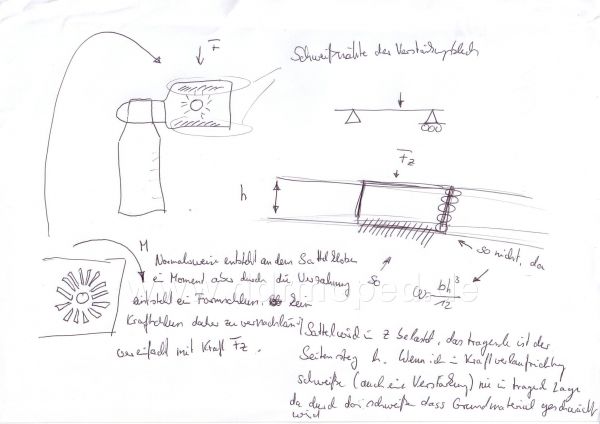 F
Schweißnähte der Verstärkungsblech
Fz
h
so nicht, da
so
bh³
12
M
Normalerweise entsteht an dem Sattelkloben
ein Moment aber durch die Verzahnung
entsteht ein Formschluss. Kein
Kraftschluss daher zu vernachlässi
vereinfacht mit Kraft Fz.
Sattel wird in z belastet, das tragende ist der
Seitensteg h. Wenn ich in Kraftverlaufrichtung
schweiße (auch eine Verstärkung) nie in tragend Lage
da durch das schweißen dass Grundmaterial geschwächt
wird